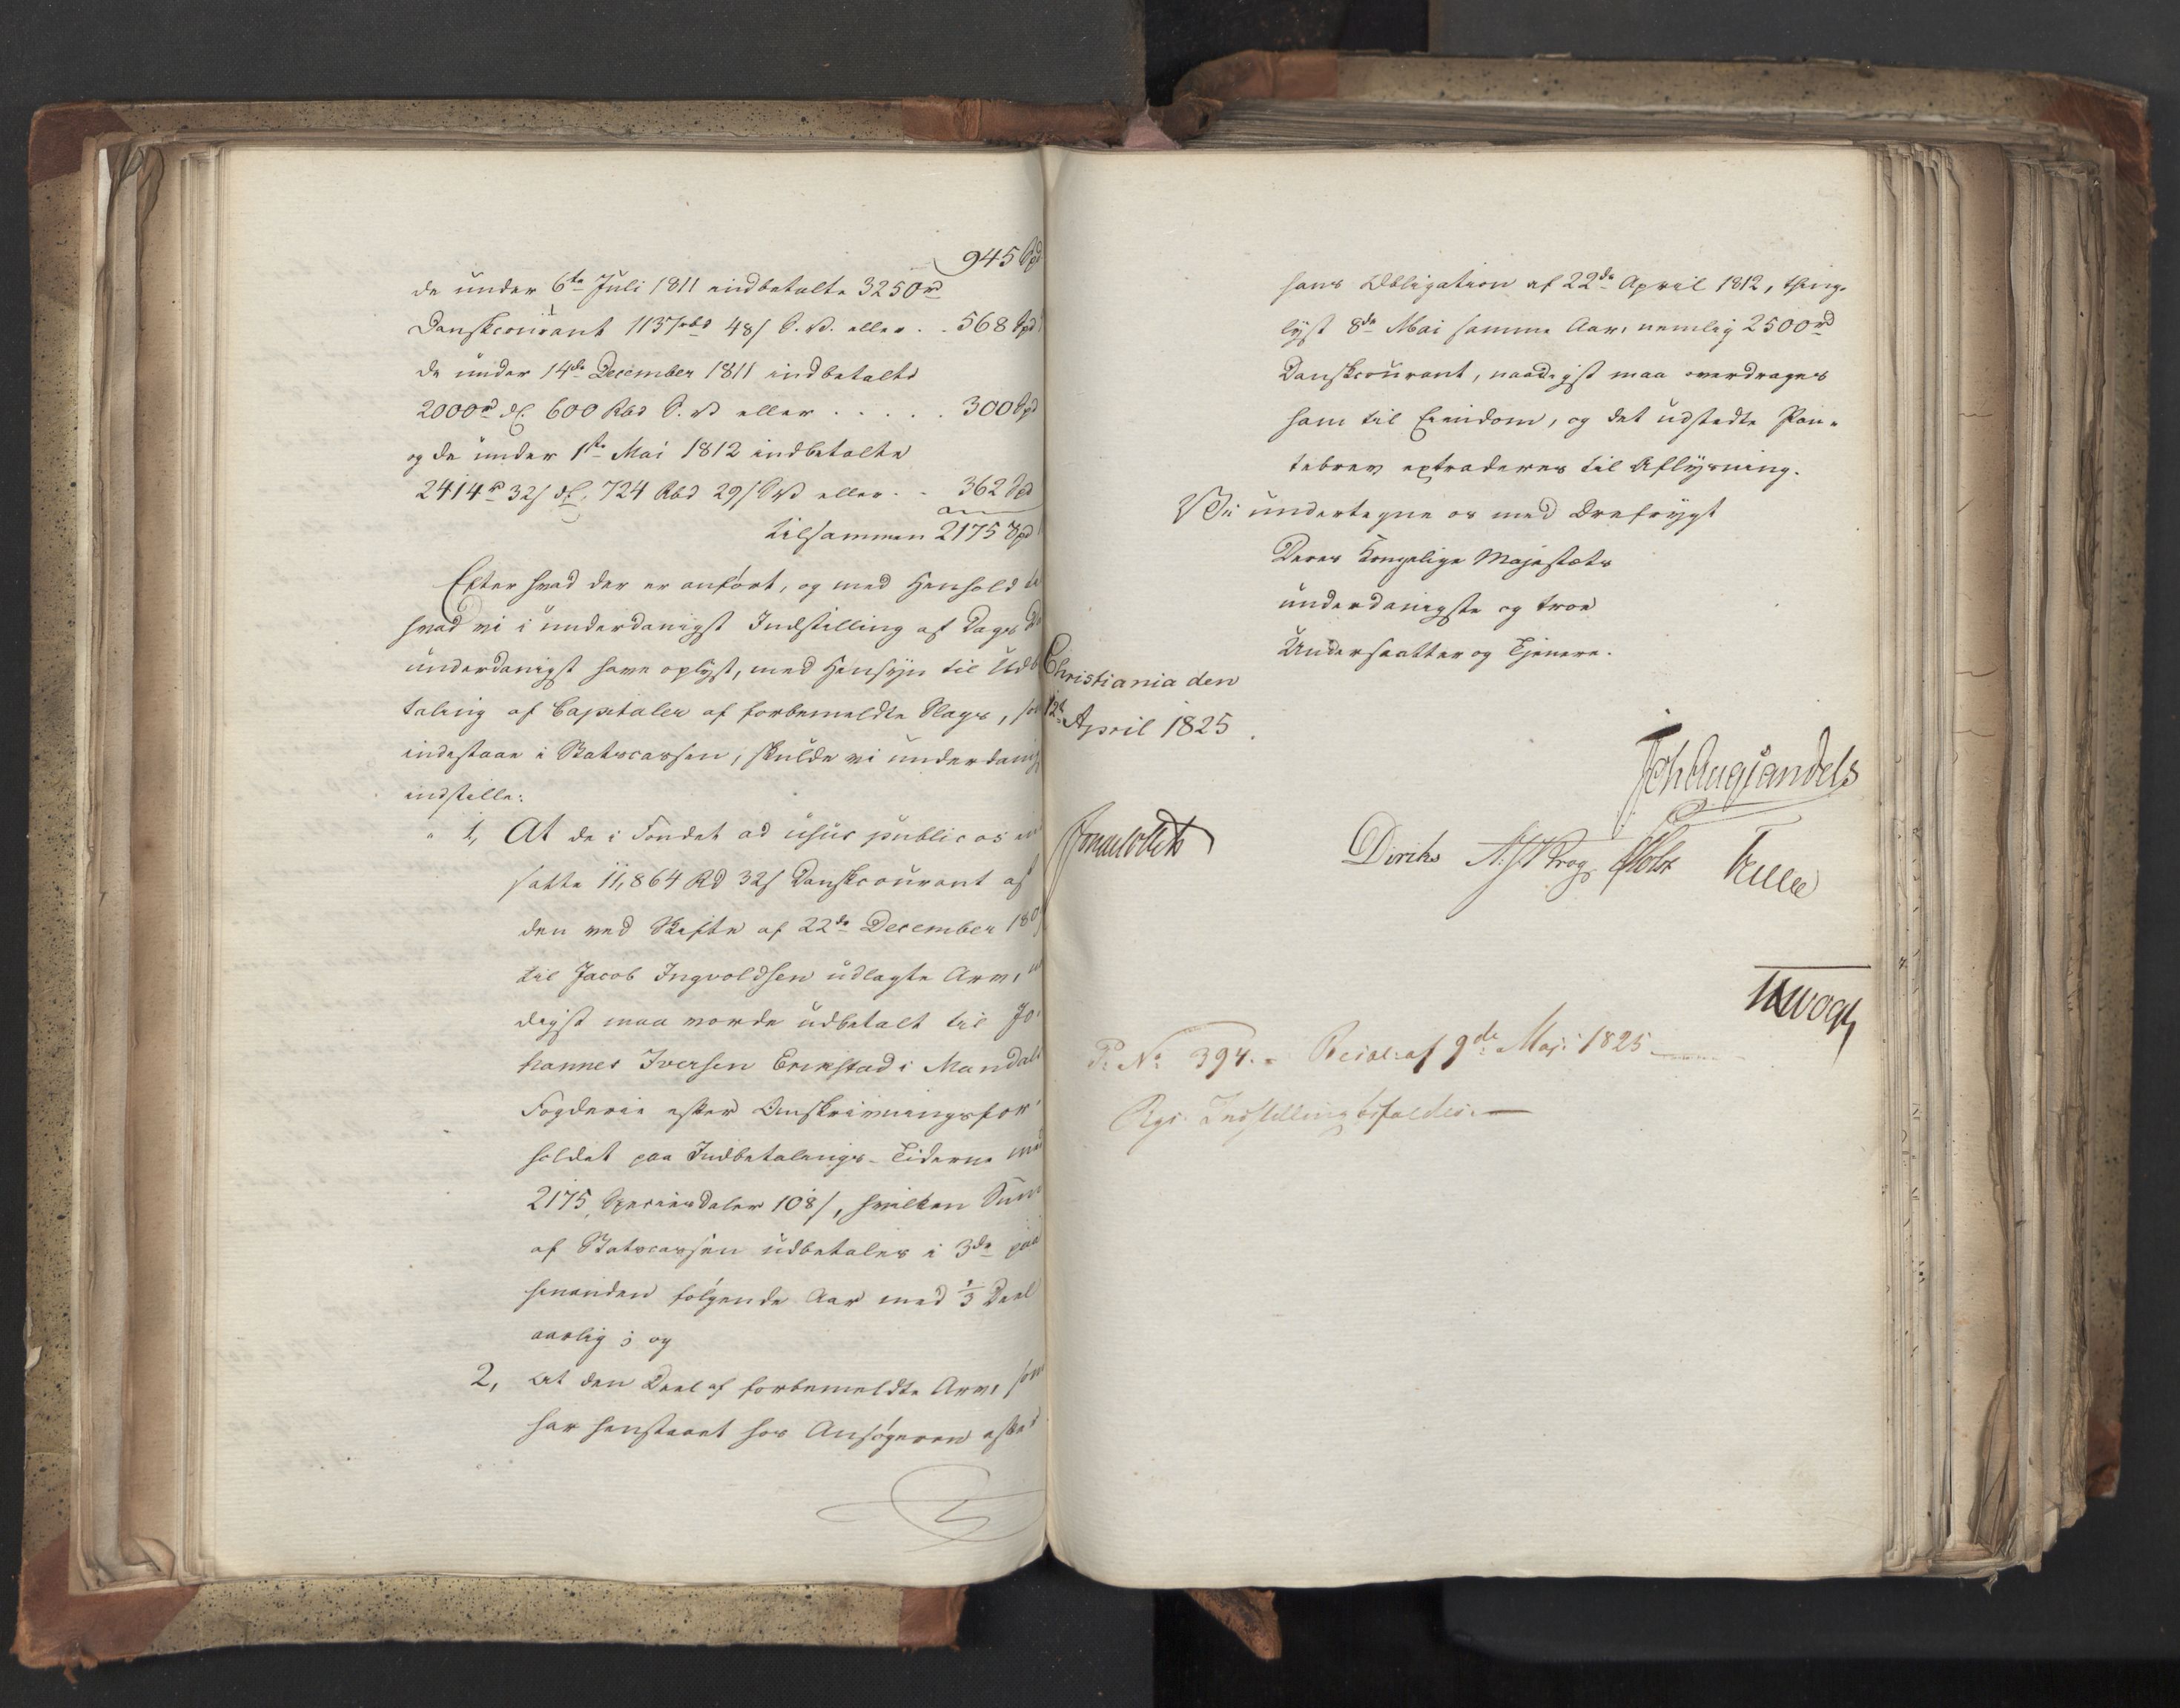 945 Spd
de under 6te Juli 1811 indbetalte 3250rd
Danskcourant 1137rbd 48s S.V. eller . . 568 Spd
de under 14de December 1811 indbetalte
2000rd d.f. 600 Rbd S.V. eller . . . . . 300 Spd
og de under 1ste Mai 1812 indbetalte
2414rd 32s df. 724 Rbd 29s SV eller . . 362 Spd
tilsammen 2175 Spd
Efter hvad der er anført, og med Henhold
hvad vi i underdanigst Indstilling af Dags
underdanigst have oplyst, med Hensyn til Udb
taling af Capitaler af forbemeldte Slags,
indestaae i Statscassen, skulde vi underdanigst
indstille:
1, At de i Fondet ad usus publicos
satte 11,864 Rd 32s Danskcourant af
den ved Skifte af 22de December 180
til Jacob Ingvoldsen udlagte Arv,
digst maa vorde udbetalt til Jo
hannes Iversen Erikstad i Mandals
Fogderie efter Omskrivningsfor
holdet paa Indbetalings-Tiderne med
2175 Speciesdaler 108s, hvilken Sum
af Statscassen udbetales i 3de paa
hinanden følgende Aar med 1/3 Deel
aarlig; og
2, at den Deel af forbemeldte Arv, som
har henstaaet hos Ansøgeren efter
hans Obligation af 22de April 1812, thing-
lyst 8de Mai samme Aar, nemlig 2500rd
Danskcourant, naadigst maa overdrages
ham til Eiendom, og det udstedte Pan-
tebrev extraderes til Aflysning.
Vi undertegne os med Ærefrygt
Deres Kongelige Majestæts
underdanigste og troe
Undersaatter og Tjenere.
Christiania den
12te April 1825.
Joh Aug Sandels
Jonas Collett Diriks Krog Holst Treschow
Vogt
P. No 394. Resol: af 9de Maj: 1825
Rgs. Indstilling bifaldes.